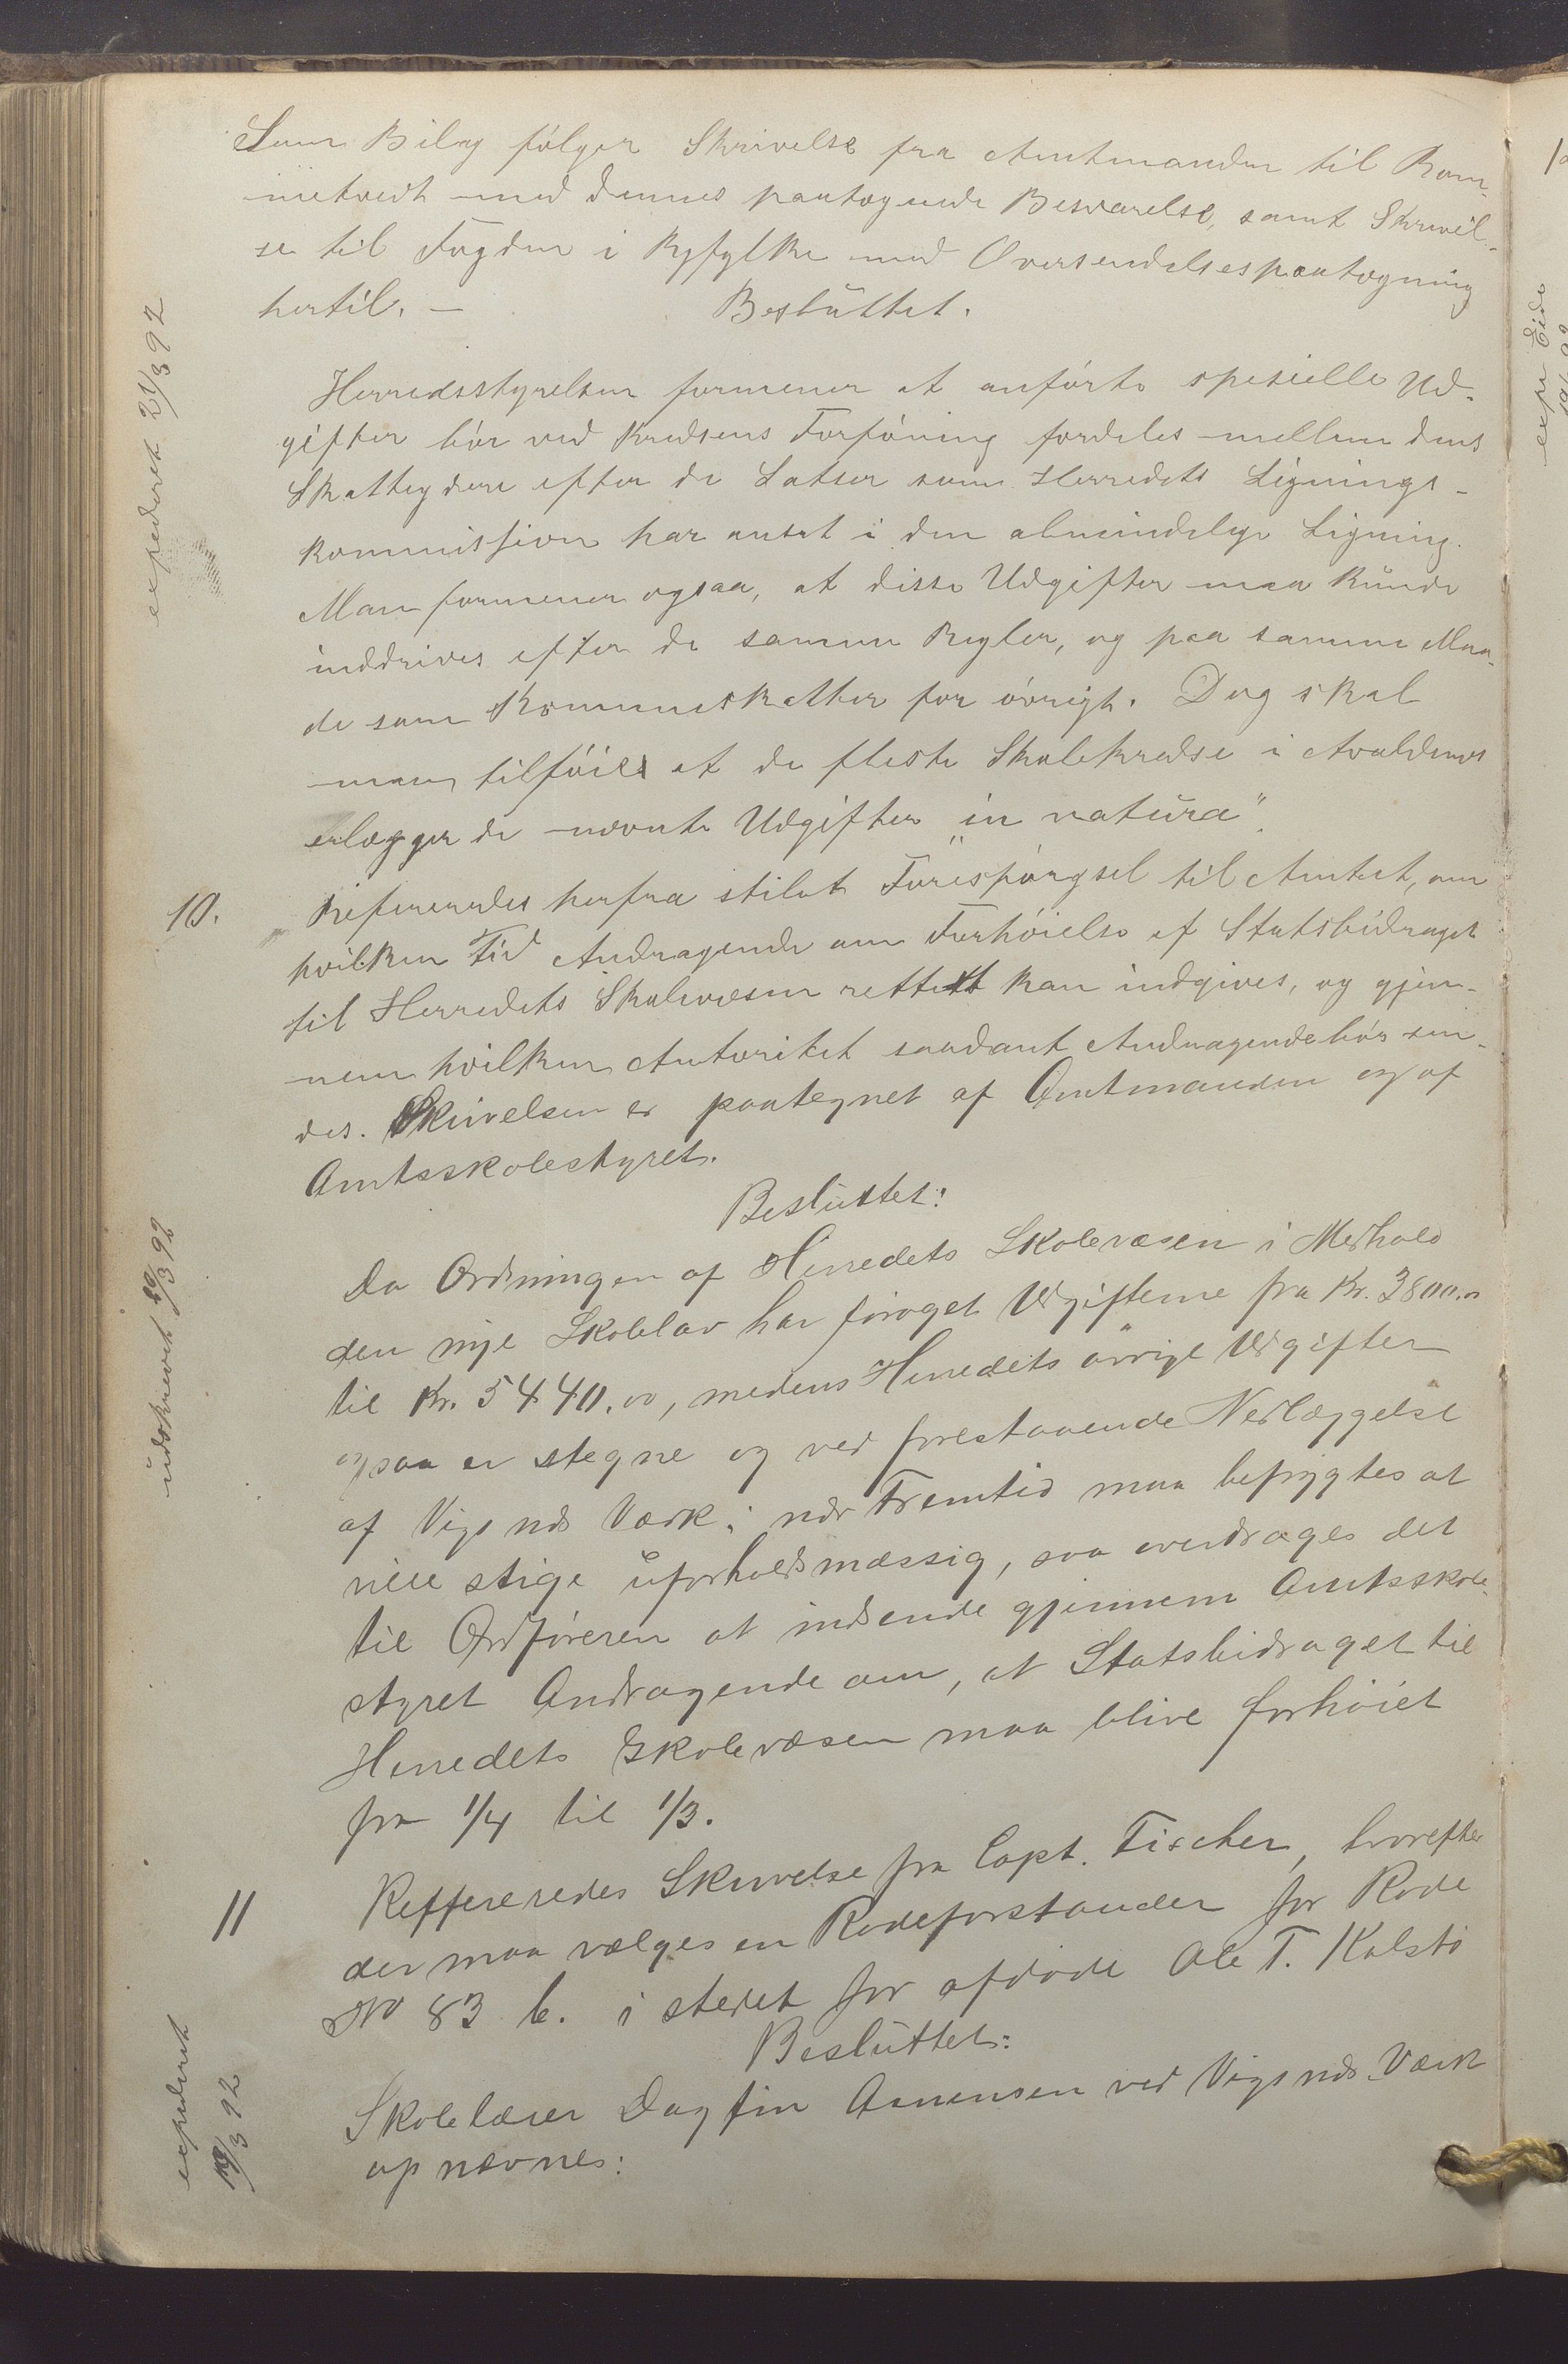 Som Bilag følger Skrivelse fra Amtmanden til Rom-
metvedt med dennes paategnede Besvarelse, samt Skrivel-
se til Fogden i Ryfylke med Oversendelsespaategning
hertil. — Besluttet.
expederet 21/3 92
Herredsstyrelsen formener at anførte spesielle Ud-
gifter bør ved Kredsens Forføining fordeles mellem dens
Skatteydere efter de Satser som Herredets Lignings-
kommission har ansat i den almindelige Ligning.
Man formener ogsaa, at disse Udgifter maa kunde
inddrives efter de samme Regler, og paa samme Maa-
de som Kommuneskatter for øvrigt. Dog skal
man tilføie at de fleste Skolekredse i Avaldsnes
erlægger de nævnte Udgifter "in natura".
10. Refereredes herfra stilet Forespørgsel til Amtet, om
hvilken Tid Andragende om Forhøielse af Statsbidraget
til Herredets Skolevæsen rettest kan indgives, og gjen-
nem hvilken Autoritet saadant Andragende bør sen-
des. Skrivelsen er paategnet af Amtmanden og af
Amtsskolestyret.
Besluttet:
udskrevet 20/3 92
Da Ordningen af Herredets Skolevæsen i Medhold
den nye Skolelov har forøget Udgifterne fra Kr. 3800.00
til Kr. 5440.00, medens Herredets øvrige Udgifter
ogsaa er stegne og ved forestaaende Nedlæggelse
af Vigsnds Værk i nær Fremtid maa befrygtes at
ville stige uforholdsmæssig, saa overdrages det
til Ordføreren at indsende gjennem Amtsskole-
styret Andragende om, at Statsbidraget til
Herredets Skolevæsen maa blive forhøiet
fra 1/4 til 1/3.
11 Reffereredes Skrivelse fra Capt. Fischer, hvorefter
der maa vælges en Rodeforstander for Rode
No 83 b. i stedet for afdøde Ole T. Kalstø
Besluttet:
expederet
19/3 92
Skolelærer Dagfin Aanensen ved Vigsnds Værk
opnævnes: